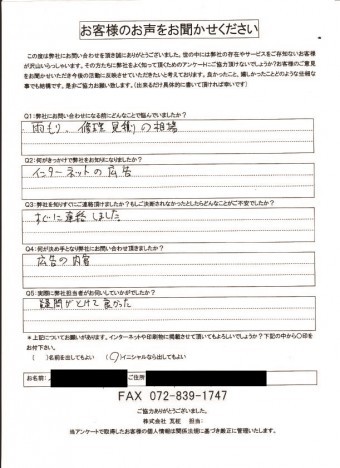 お客様のお声をお聞かせください
この度は弊社にお問い合わせを頂き誠にありがとうございました。世の中には弊社の存在やサービスをご存知ないお客様
が沢山いらっしゃいます。その方たちに弊社をよく知って頂くためのアンケートにご協力頂けないでしょうか?お客様のご意見
をお聞かせいただき今後の活動に反映させていただきたいと考えております。良かったこと、嬉しかったことどのような些細な
事でも結構です。是非ご協力お願い致します。(出来るだけ具体的に書いて頂ければ幸いです)
Q1:弊社にお問い合わせになる前にどんなことで悩んでいましたか?
雨もり、修理見積りの相場
Q2:何がきっかけで弊社をお知りになりましたか?
インターネットの広告
Q3:弊社を知りすぐにご連絡頂けましたか?もしご決断されなかったとしたらどんなことがご不安でしたか?
すぐに連絡しました
Q4:何が決め手となり弊社にお問い合わせ頂きましたか?
広告の内容
Q5:実際に弊社担当者がお伺いしていかがでしたか?
疑問がとけて良かった
*上記についてお願いがあります。インターネットや印刷物に掲載させて頂いてもよろしいでしょうか?下記の中から○印を
お付下さい。
( )名前を出してもよい (○)イニシャルなら出してもよい
お名前: ご住所
FAX 072-839-1747
ご協力ありがとうございました。
株式会社 瓦桩 担当:
当アンケートで取得したお客様の個人情報は関係法規に基づき厳正に管理いたします。